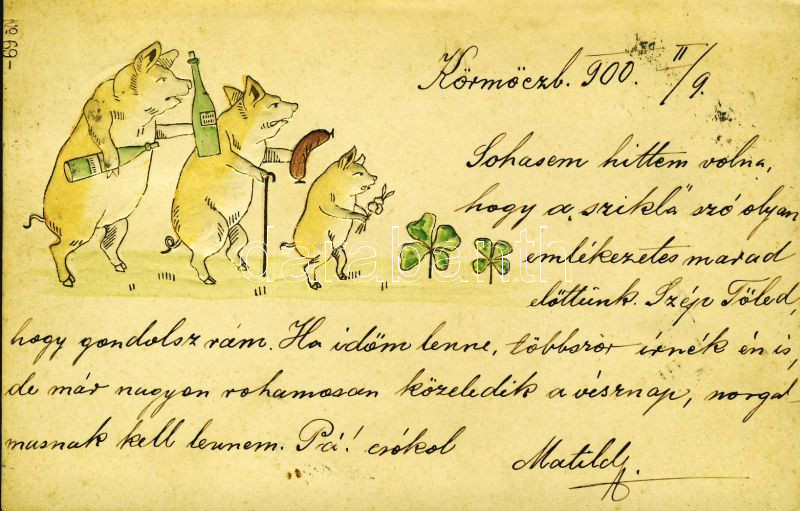 No 69-
Körmöczb. 900. II/9.
Sohasem hittem volna,
hogy a „szikla" szó olyan
emlékezetes marad
előttünk. Szép Tőled,
hogy gondolsz rám. Ha időm lenne, többször írnék én is,
de már nagyon rohamosan közeledik a vésznap, norgal-
musnak kell lennem. Pá! csókol
Matild
darabanth